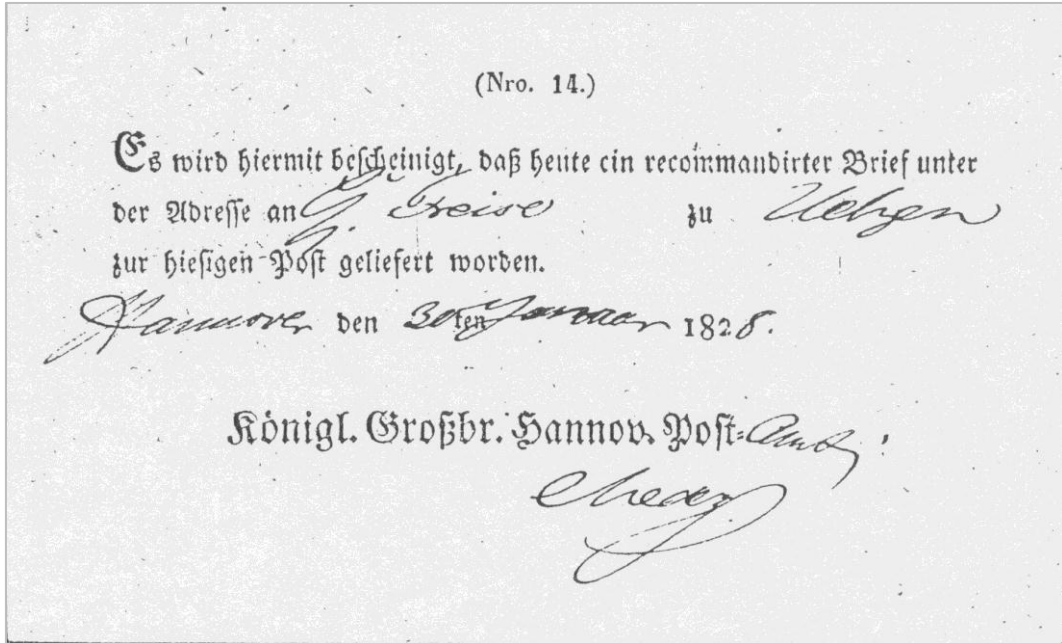 (Nro. 14.)
Es wird hiermit bescheinigt, daß heute ein recommandirter Brief unter
der Adresse an G. Kreise zu Uelzen
zur hiesigen Post geliefert worden.
Hannover den 30ten Januar 1828.
Königl. Großbr. Hannov. Post-Amt